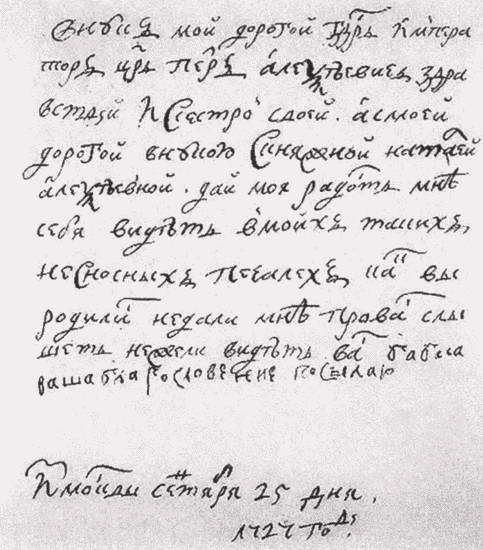 Внукъ мой дорогой гдрь Импера
торъ црь петръ алеѯѣевичъ здра
вствуй И Сестрою своей. а моей
дорогой внукою Сикняжной наталей
алеѯѣевной. дай моя радость мнѣ
себя видѣть в мойхъ такихъ
несносныхъ печалехъ, как вы
родились недали мнѣ пра вас слы
шеть нежели видѣть вас бабка
ваша благословение посылаю
Из москвы сентября 25 дня.
1727 году.